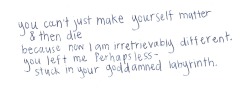 you can't just make yourself matter
& then die
because now I am irretrievably different.
you left me Perhapsless-
stuck in your goddamned labyrinth.